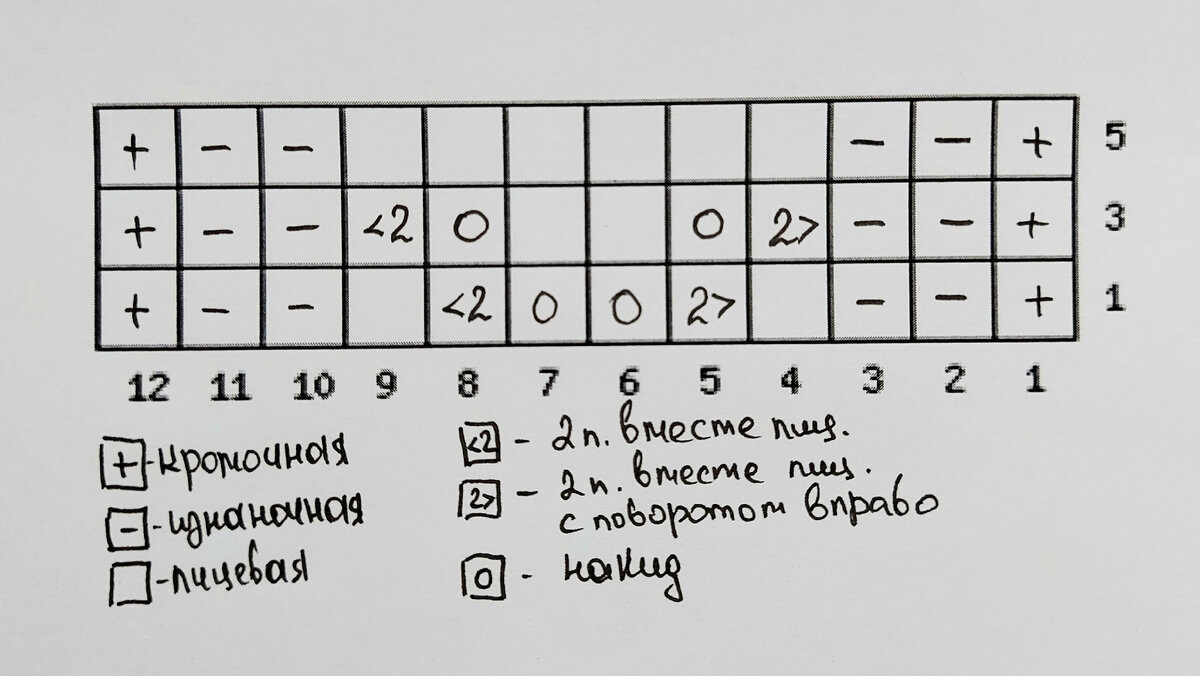 + - - - - + 5
+ - - <2 O O 2> - - + 3
+ - - <2 O O 2> - - + 1
12 11 10 9 8 7 6 5 4 3 2 1
+ -кромочная
- -изнаночная
-лицевая
<2 - 2п. вместе лиц.
2> - 2п. вместе лиц.
с поворотом вправо
O - накид